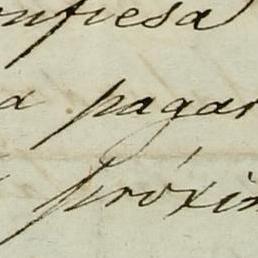 onfiesa
a pagar
próxim